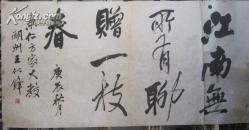 江南無
所有聊
贈一枝
春
庚辰秋月
仁方家大教
湖州王似鋒